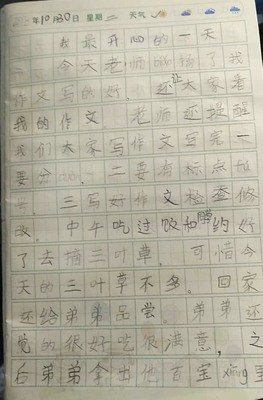 年10月30日 星期二 天气
我最开心的一天
今天老师biǎo扬了我
作文写的好。还让大家看
我的作文 老师还提醒
我们大家写作文写完一
要分 二要有标点符
号。三写好作文检查修
改。中午吃过饭和鹏约好
了去摘三叶草。可惜今
天的三叶草不多。回家
还给弟弟品尝。弟弟还
觉的很好吃很满意,之
后弟弟拿出他百宝xiāng里